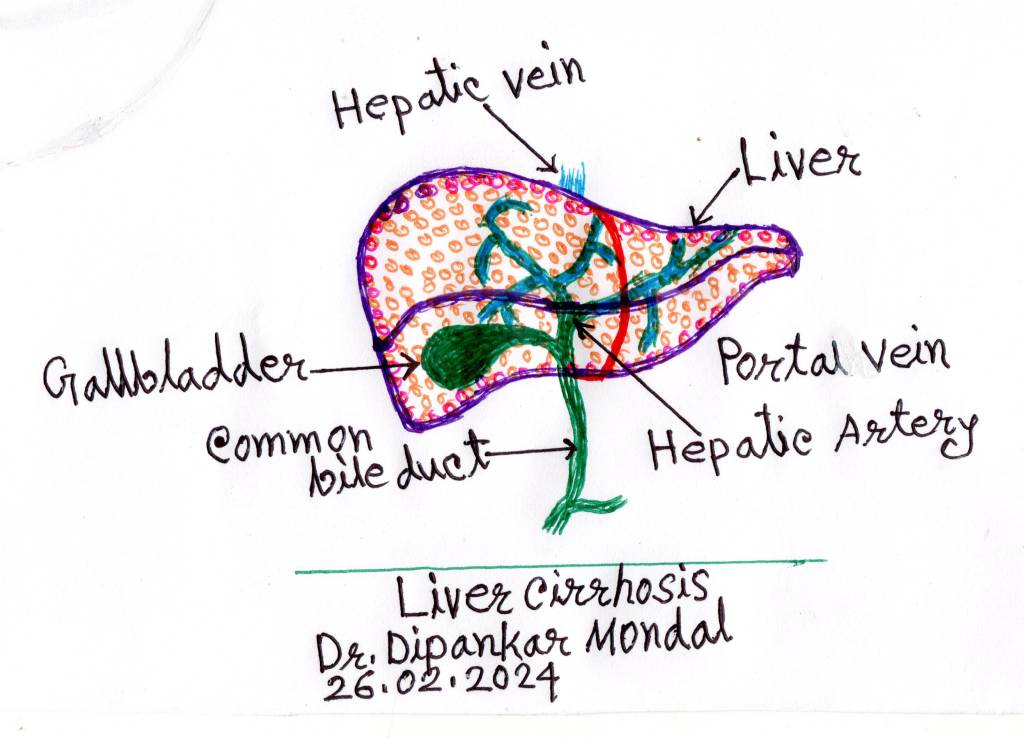 Hepatic vein
Liver
Gallbladder
Portal vein
Common
bile duct
Hepatic Artery
Liver cirrhosis
Dr. Dipankar Mondal
26.02.2024